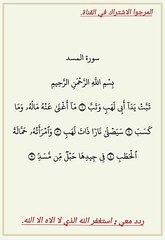 المرجوا الاشتراك في القناة.
سورة المسد
بِسْمِ اللَّهِ الرَّحْمَٰنِ الرَّحِيمِ
تَبَّتْ يَدَآ أَبِي لَهَبٍ وَتَبَّ ۝ مَآ أَغْنَىٰ عَنْهُ مَالُهُۥ وَمَا
كَسَبَ ۝ سَيَصْلَىٰ نَارًا ذَاتَ لَهَبٍ ۝ وَٱمْرَأَتُهُۥ حَمَّالَةَ
ٱلْحَطَبِ ۝ فِي جِيدِهَا حَبْلٌ مِّن مَّسَدٍۭ ۝
ردد معي : استغفر الله الذي لا الاه الا الله.